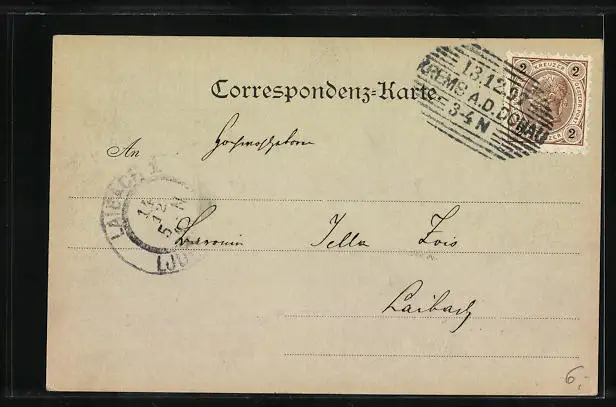 Correspondenz-Karte
13.12.97
KREMS A.D. DONAU
3-4 N
2 KREUZER 2
2
An Hochwohlgeboren
LAIBACH 1
14
12
5-N
LJU
Baronin Jella Zois
Laibach
6.-